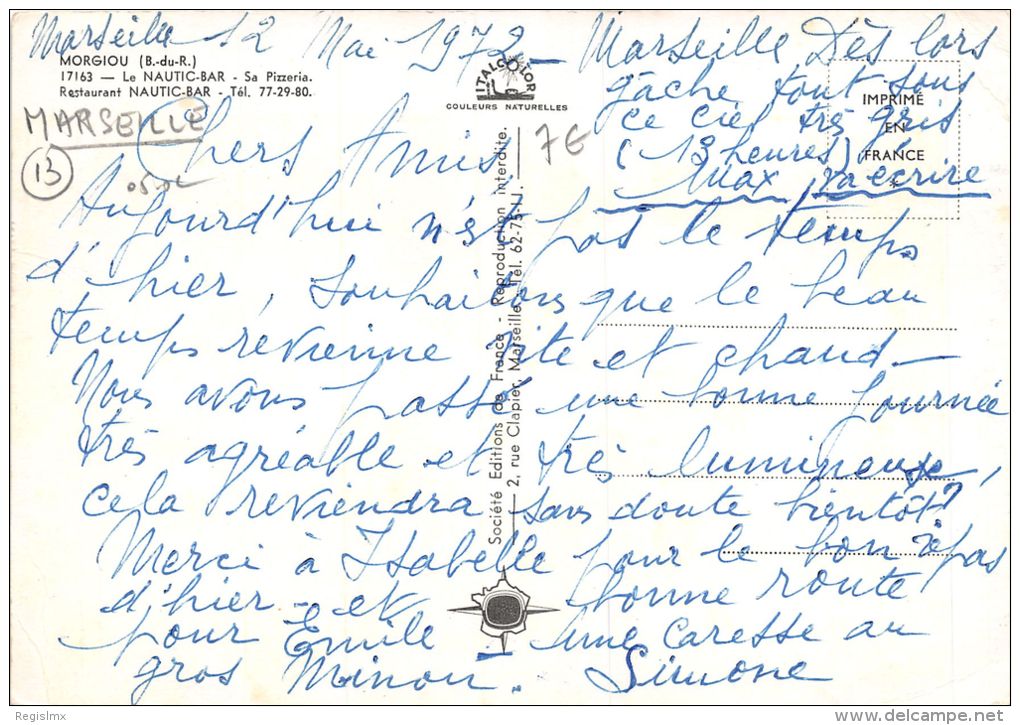 Marseille 12 Mai 1972 - Marseille Dès lors
gâche tout sous
ce ciel très gris
(13 heures)
Max va écrire
MORGIOU (B.-du-R.)
17163 — Le NAUTIC-BAR - Sa Pizzeria.
Restaurant NAUTIC-BAR - Tél. 77-29-80.
ITALCOLOR
COULEURS NATURELLES
IMPRIMÉ
EN
FRANCE
MARSEILLE
13
05.02
7€
Chers Amis
Aujourd'hui n'est pas le temps
d'hier, souhaitons que le beau
temps revienne vite et chaud -
Nous avons passé une bonne journée
très agréable et très lumineuse,
cela reviendra sans doute bientôt?
Merci à Isabelle pour le bon repas
d'hier - et bonne route
pour Emile - une caresse au
gros Minou. Simone
Société Editions de France - Reproduction interdite.
2, rue Clapier, Marseille - Tél. 62-75-11.
© Regislmx
www.delcampe.net